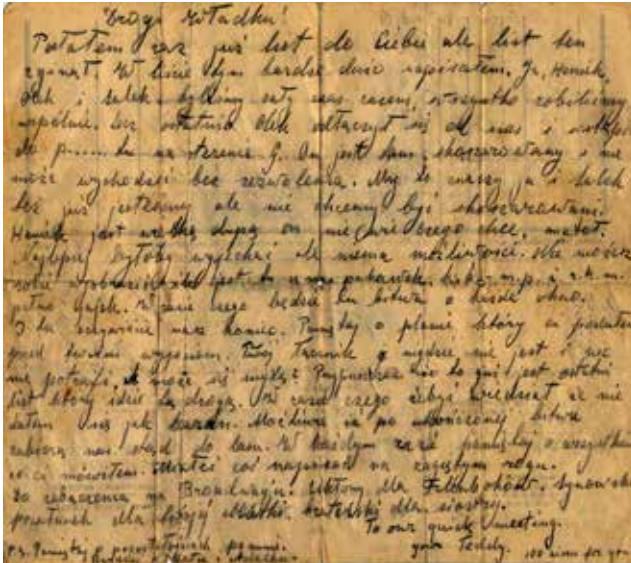 Drogi Władku!
Posłałem raz już list do Ciebie ale list ten
zginął. W liście tym bardzo dużo napisałem. Ja, Heniek,
Olek i Lolek byliśmy cały czas razem, wszystko robiliśmy
wspólnie. Lecz ostatnio Olek odłączył się od nas i wstąpił
do p..... tu na terenie G. On jest tam skoszarowany i nie
może wychodzić bez zezwolenia. My to znaczy ja i Lolek
też już jesteśmy ale nie chcemy być skoszarowani.
Heniek jest wielką dupą on nie wie czego chce,
Najlepiej byłoby wyjechać ale niema możliwości. Nie możesz
sobie wyobrazić jest tu pukawek, i r.k.m.
pełno jajek. W razie czego będzie tu bitwa o każde okno.
I tu nasz koniec. Pamiętaj o planie który ci
przed twoim wyjazdem. Twój i nędzny nie jest i
nie potrafi, A może się mylę? że to już jest ostatni
list który idzie tą drogą. W razie czego żebyś wiedział że nie
dałem się jak baran. Możliwe iż po skończonej bitwie
zabiorą nas stąd do lasu. W każdym razie pamiętaj o wszystkim
co ci mówiłem. Miałeś coś napisać na rogu.
Do zobaczenia na Broadway'u. Ukłony dla synowski
pocałunek dla twojej Matki, braterski dla siostry.
To our quick meeting.
your Teddy.
P.S. Pamiętaj o po mnie.
for you